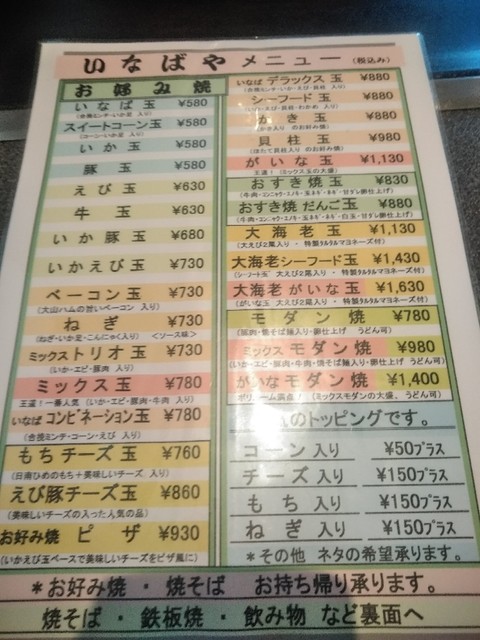 いなばや メニュー (税込み)
お好み焼
いなば玉 ¥580
(合挽ミンチ・いか足 入り)
スイートコーン玉 ¥580
(コーン・いか足 入り)
いか玉 ¥580
豚玉 ¥580
えび玉 ¥630
牛玉 ¥630
いか豚玉 ¥680
いかえび玉 ¥730
ベーコン玉 ¥730
(大山ハムの旨いベーコン 入り)
ねぎ ¥730
(ねぎ・いか足・こんにゃく入り) <ソース味>
ミックストリオ玉 ¥730
(いか・エビ・豚肉 入り)
ミックス玉 ¥780
王道!一番人気 (いか・エビ・豚肉・牛肉 入り)
いなばコンビネーション玉 ¥780
(合挽ミンチ・コーン・エビ 入り)
もちチーズ玉 ¥760
(日南ひめのもち+美味しいチーズ 入り)
えび豚チーズ玉 ¥860
(美味しいチーズの入った人気の品)
お好み焼 ピザ ¥930
(いかえび玉ベースで美味しいチーズをピザ風に)
いなばデラックス玉 ¥880
(合挽ミンチ・いか・えび・貝柱 入り)
シーフード玉 ¥880
かき玉 ¥880
(かき入り のお好み焼)
貝柱玉 ¥980
(ほたて貝柱入り のお好み焼)
がいな玉 ¥1,130
王道!(ミックス玉の大盛)
おすき焼玉 ¥830
(牛肉・コンニャク・エノキ・玉ネギ・ネギ・甘ダレ卵仕上げ)
おすき焼だんご玉 ¥880
(牛肉・コンニャク・エノキ・玉ネギ・ネギ・白玉・甘ダレ卵仕上げ)
大海老玉 ¥1,130
(大えび2尾入り・特製タルタルマヨネーズ付)
大海老シーフード玉 ¥1,430
(シーフード玉 大えび2尾入り・特製タルタルマヨネーズ付)
大海老がいな玉 ¥1,630
(がいな玉 大えび2尾入り・特製タルタルマヨネーズ付)
モダン焼 ¥780
(豚肉・焼そば麺入り・卵仕上げ うどん可)
ミックスモダン焼 ¥980
(いか・エビ・豚肉・牛肉・焼そば麺入り・卵仕上げ うどん可)
がいなモダン焼 ¥1,400
ボリューム満点!(ミックスモダンの大盛、うどん可)
のトッピングです。
コーン入り ¥50プラス
チーズ入り ¥150プラス
もち入り ¥150プラス
ねぎ入り ¥150プラス
*その他 ネタの希望承ります。
*お好み焼・焼そば お持ち帰り承ります。
焼そば・鉄板焼・飲み物 など裏面へ